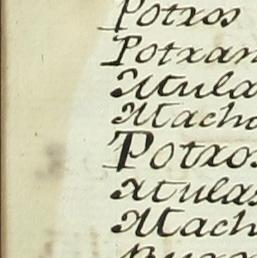 Potros
Potran
Mula
Mach
Potros
Mulas
Mach